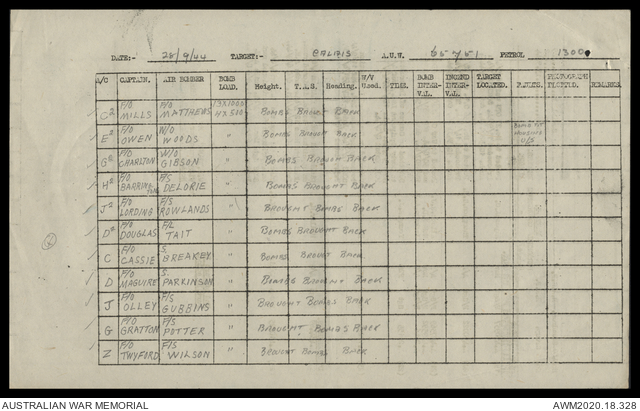 DATE:- 28/9/44 TARGET:- CALAIS A.U.W. 65751 PETROL 1300
A/C CAPTAIN. AIR BOMBER BOMB LOAD. Height. T.A.S. Heading. W/V Used. TIME. BOMB INTERVAL. INCEND INTERVAL. TARGET LOCATED. FAULTS. PHOTOGRAPH PLOTTED. REMARKS.
C² F/O MILLS F/O MATTHEWS 13X1000 4X500 BOMBS BROUGHT BACK
E² F/O OWEN W/O WOODS " BOMBS BROUGHT BACK U/S
G² F/O CHARLTON W/O GIBSON " BOMBS BROUGHT BACK
H² F/O BARRINGTON F/S DELORIE " BOMBS BROUGHT BACK
J² F/O LORDING F/S ROWLANDS " BROUGHT BOMBS BACK
D² F/O DOUGLAS F/L TAIT " BOMBS BROUGHT BACK
C F/O CASSIE S. BREAKEY " BOMBS BROUGHT BACK
D F/O MAGUIRE S. PARKINSON " BOMBS BROUGHT BACK
J F/O OLLEY F/S GUBBINS " BROUGHT BOMBS BACK
G F/O GRATTON F/S POTTER " BROUGHT BOMBS BACK
Z F/O TWYFORD F/S WILSON " BROUGHT BOMBS BACK
AUSTRALIAN WAR MEMORIAL AWM2020.18.328